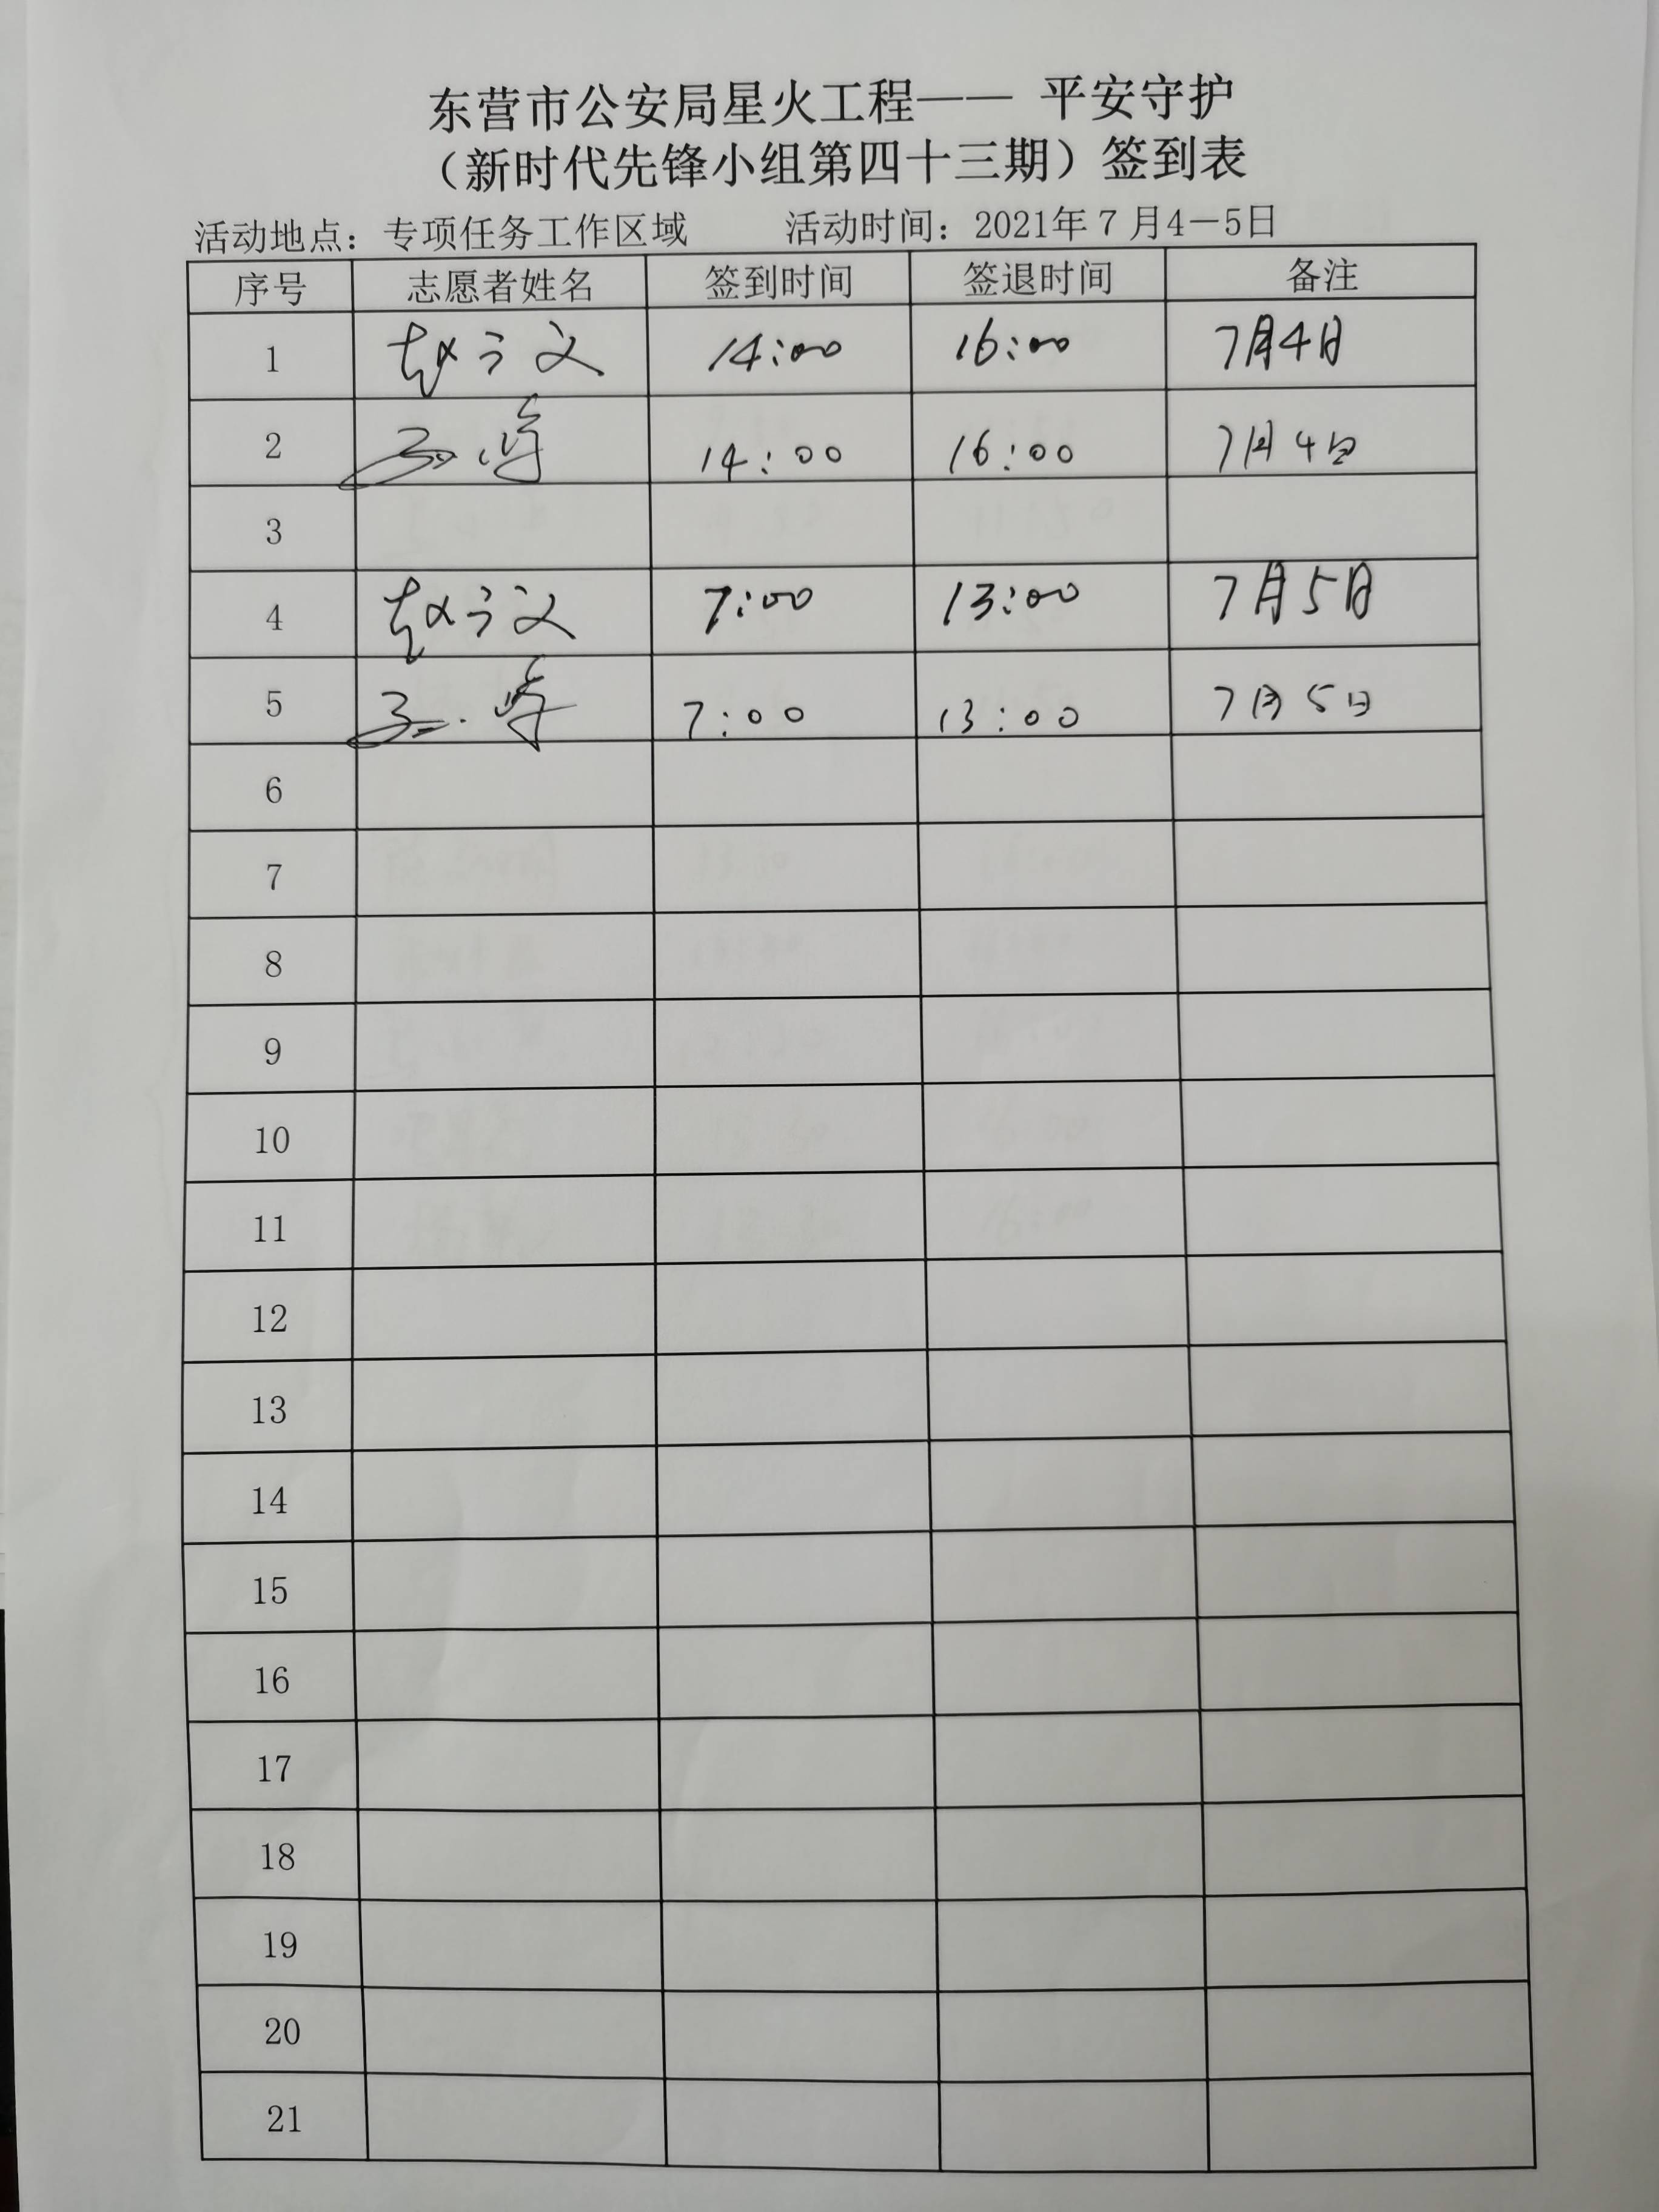 东营市公安局星火工程—— 平安守护
（新时代先锋小组第四十三期）签到表
活动地点：专项任务工作区域 活动时间：2021年7月4—5日
序号 志愿者姓名 签到时间 签退时间 备注
1 赵 文 14:00 16:00 7月4日
2 14:00 16:00 7月4日
3
4 赵 文 7:00 13:00 7月5日
5 7:00 13:00 7月5日
6
7
8
9
10
11
12
13
14
15
16
17
18
19
20
21